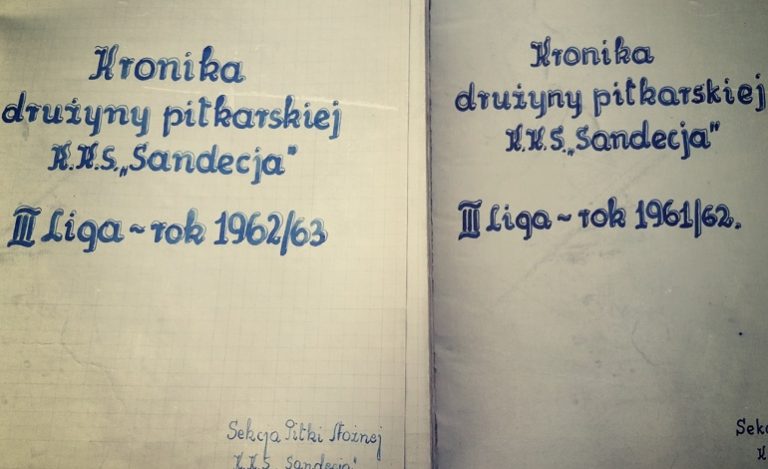 Kronika
drużyny piłkarskiej
K.K.S. „Sandecja"
III Liga ~ rok 1962/63
Sekcja Piłki Nożnej
K.K.S „Sandecja"
Kronika
drużyny piłkarskiej
K.K.S. „Sandecja"
III Liga ~ rok 1961/62.